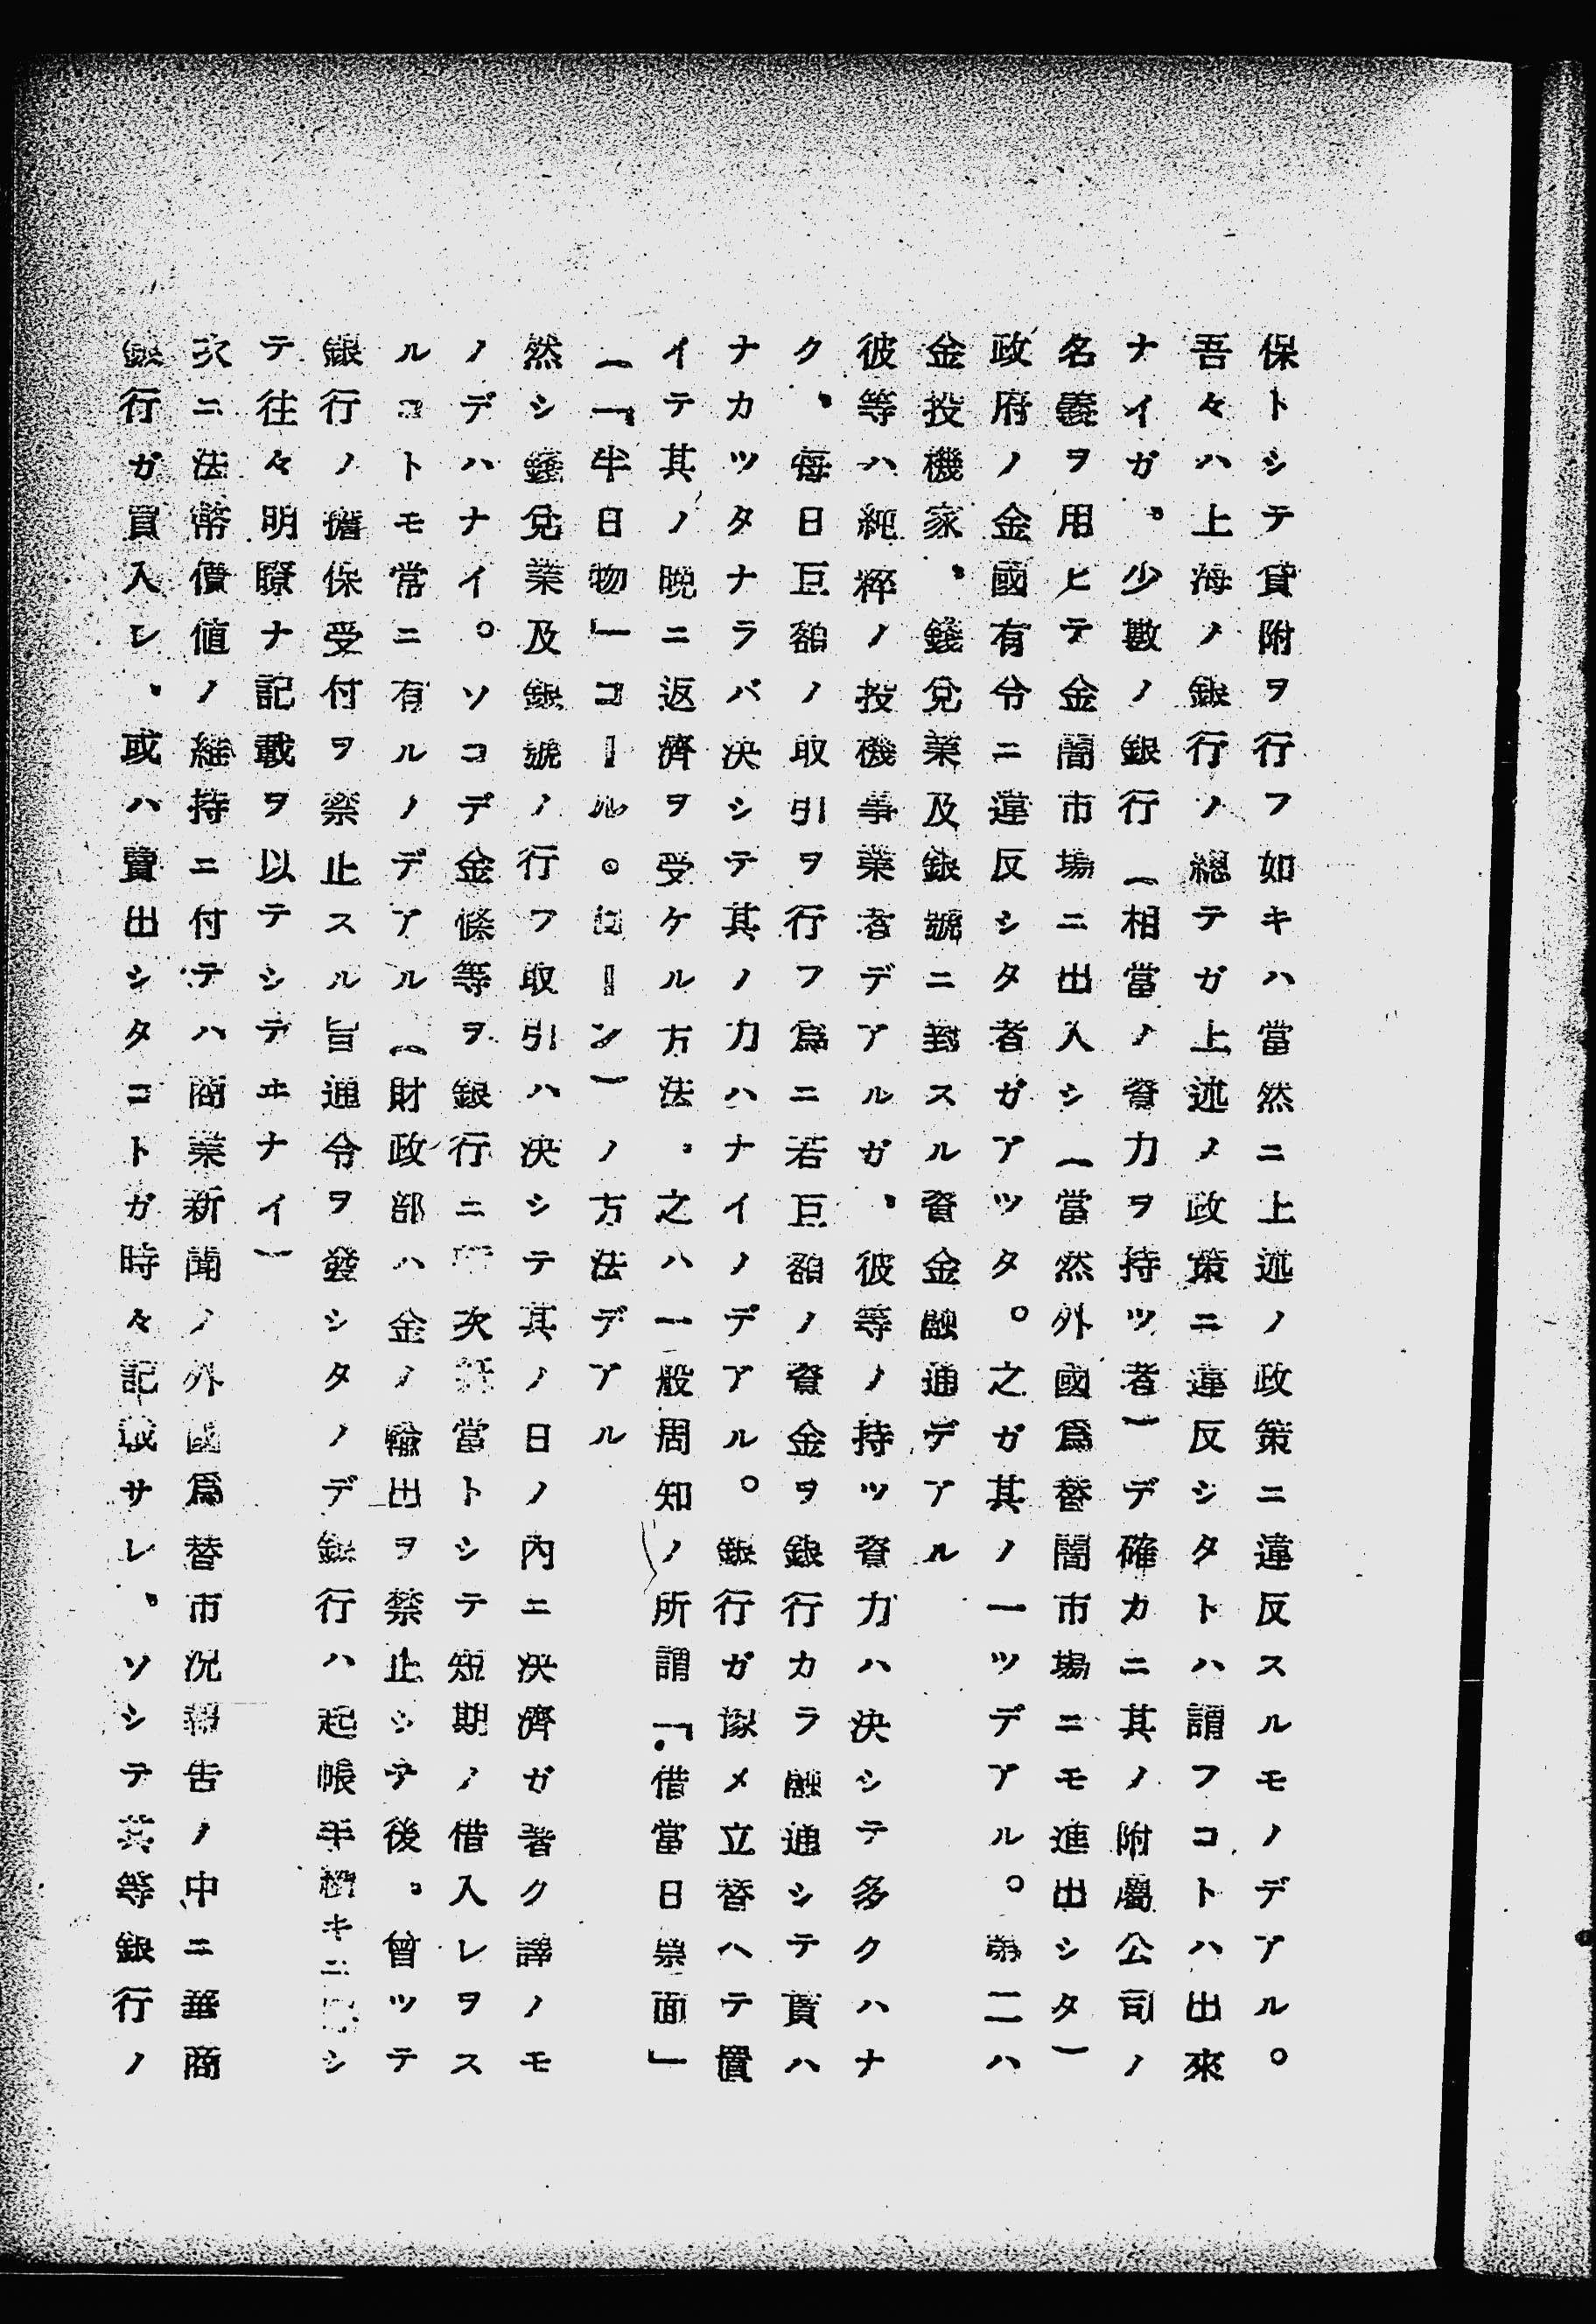 保トシテ貸附ヲ行フ如キハ當然ニ上述ノ政策ニ違反スルモノデアル。
吾々ハ上海ノ銀行ノ總テガ上述ノ政策ニ違反シタトハ謂フコトハ出來
ナイガ、少數ノ銀行（相當ノ資力ヲ持ツ者）デ確カニ其ノ附屬公司ノ
名義ヲ用ヒテ金闇市場ニ出入シ（當然外國爲替闇市場ニモ進出シタ）
政府ノ金國有令ニ違反シタ者ガアツタ。之ガ其ノ一ツデアル。第二ハ
金投機家、錢兌業及銀號ニ對スル資金融通デアル
彼等ハ純粹ノ投機事業者デアルガ、彼等ノ持ツ資力ハ決シテ多クハナ
ク、每日巨額ノ取引ヲ行フ爲ニ若巨額ノ資金ヲ銀行カラ融通シテ貰ハ
ナカツタナラバ決シテ其ノ力ハナイノデアル。銀行ガ豫メ立替ヘテ置
イテ其ノ晩ニ返濟ヲ受ケル方法、之ハ一般周知ノ所謂「借當日票面」
（「半日物」コール。ローン）ノ方法デアル
然シ錢兌業及銀號ノ行フ取引ハ決シテ其ノ日ノ內ニ決濟ガ著ク譯ノモ
ノデハナイ。ソコデ金條等ヲ銀行ニ次當トシテ短期ノ借入レヲス
ルコトモ常ニ有ルノデアル（財政部ハ金ノ輸出ヲ禁止シテ後、曾ツテ
銀行ノ擔保受付ヲ禁止スル旨通令ヲ發シタノデ銀行ハ起帳手續キニシ
テ往々明瞭ナ記載ヲ以テシテヰナイ）
次ニ法幣價値ノ維持ニ付テハ商業新聞ノ外國爲替市況報告ノ中ニ華商
銀行ガ買入レ、或ハ賣出シタコトガ時々記載サレ、ソシテ其等銀行ノ